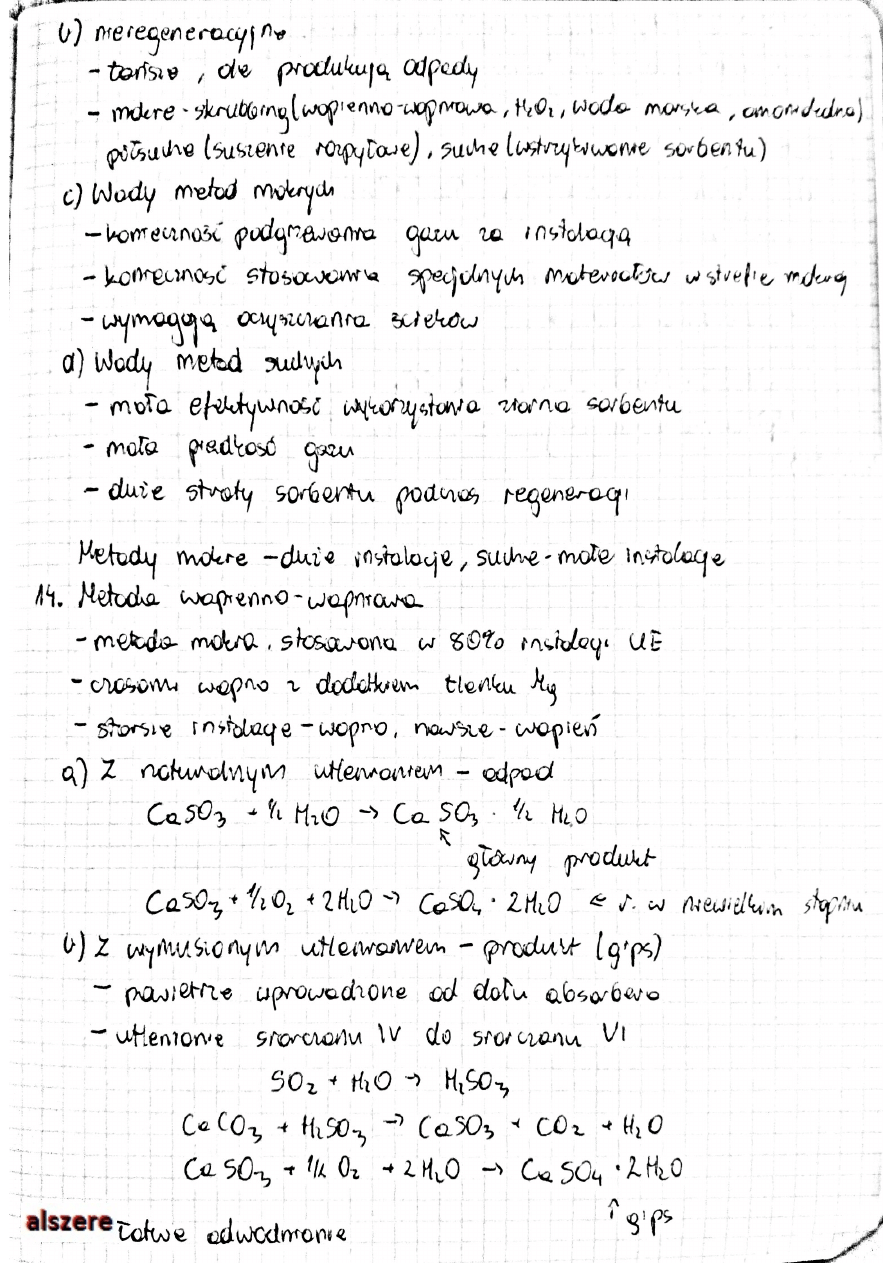 b) nieregeneracyjne
- tańsze, ale produkują odpady
- mokre - skrubbing (wapienno-wapniowa, H₂O₂, woda morska, amoniakalna)
półsuche (suszenie rozpyłowe), suche (wstrzykiwanie sorbentu)
c) Wady metod mokrych
- konieczność podgrzewania gazu za instalacją
- konieczność stosowania specjalnych materiałów w strefie mokrej
- wymagają oczyszczania ścieków
d) Wady metod suchych
- mała efektywność wykorzystania ziarna sorbentu
- mała prędkość gazu
- duże straty sorbentu podczas regeneracji
Metody mokre - duże instalacje, suche - małe instalacje
14. Metoda wapienno-wapniowa
- metoda mokra, stosowana w 80% instalacji UE
- czasami wapno z dodatkiem tlenku Mg
- starsze instalacje - wapno, nowsze - wapień
a) Z naturalnym utlenianiem - odpad
CaSO₃ + ½ H₂O → CaSO₃ · ½ H₂O
↖ główny produkt
CaSO₃ + ½O₂ + 2H₂O → CaSO₄ · 2H₂O ← r. w niewielkim stopniu
b) Z wymuszonym utlenianiem - produkt (gips)
- powietrze wprowadzone od dołu absorbera
- utlenianie siarczanu IV do siarczanu VI
SO₂ + H₂O → H₂SO₃
CaCO₃ + H₂SO₃ → CaSO₃ + CO₂ + H₂O
CaSO₃ + ½ O₂ + 2H₂O → CaSO₄ · 2H₂O
↑ gips
alszere
Łatwe odwadnianie